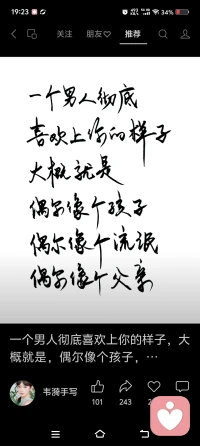 19:23
34%
关注
朋友♡
推荐
一个男人彻底
喜欢上你的样子
大概就是
偶尔像个孩子
偶尔像个流氓
偶尔像个父亲
一个男人彻底喜欢上你的样子，大
概就是，偶尔像个孩子，…
韦漪手写
101
243